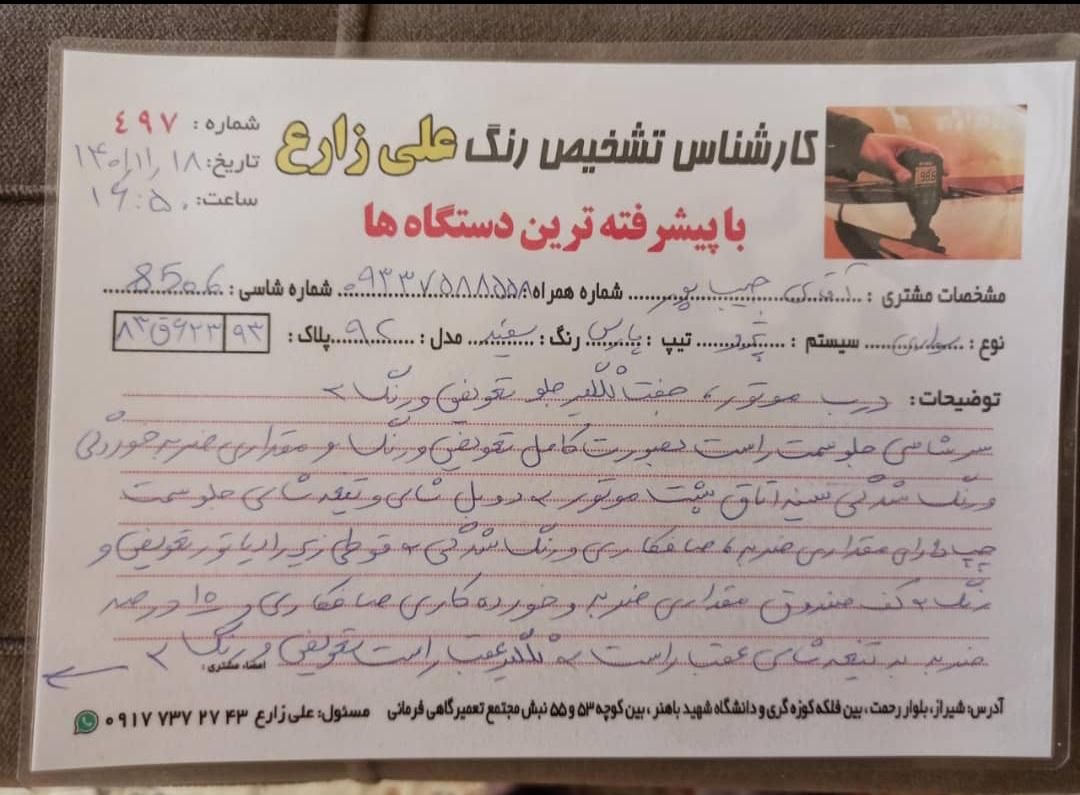 کارشناس تشخیص رنگ علی زارع
با پیشرفته ترین دستگاه ها
شماره : ۴۹۷
تاریخ: ۱۴۰۱/۱/۱۸
ساعت: ۱۶:۵۰
98.6
مشخصات مشتری : آقای حبیب پور شماره همراه: ۰۹۳۳۷۵۸۸۵۵۸ شماره شاسی : 8506
نوع : سواری سیستم : پژو تیپ : پارس رنگ : سفید مدل : ۹۲ پلاک : ۸۳ق۶۲۳ ۹۳
توضیحات: درب موتور، جفت گلگیر جلو تعویض و رنگ،
سرشاسی جلو سمت راست بصورت کامل تعویض و رنگ و مقداری ضربه خوردگی
و رنگ شدگی سینه اتاق پشت موتور، دوبل شاسی و تیغه شاسی جلو سمت
چپ دارای مقداری ضربه، صافکاری و رنگ شدگی، قوطی زیر رادیاتور تعویض و
رنگ، کف صندوق مقداری ضربه و خورده کاری صافکاری و ۱۵ درصد
ضربه به تیغه شاسی عقب راست، گلگیر عقب راست تعویض و رنگ،
امضاء مشتری :
آدرس: شیراز، بلوار رحمت، بین فلکه کوزه گری و دانشگاه شهید باهنر، بین کوچه ۵۳ و ۵۵ نبش مجتمع تعمیرگاهی فرمانی مسئول: علی زارع ۰۹۱۷ ۷۳۷ ۲۷ ۴۳